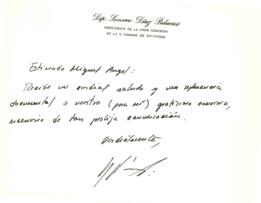 Dip. Socorro Díaz Palacios
PRESIDENTA DE LA GRAN COMISIÓN
DE LA H. CÁMARA DE DIPUTADOS
Estimado Miguel Angel:
Recibe un cordial saludo y una referencia
documental a nuestro (para mí)
memorio de tan conversación.
Cordialmente,